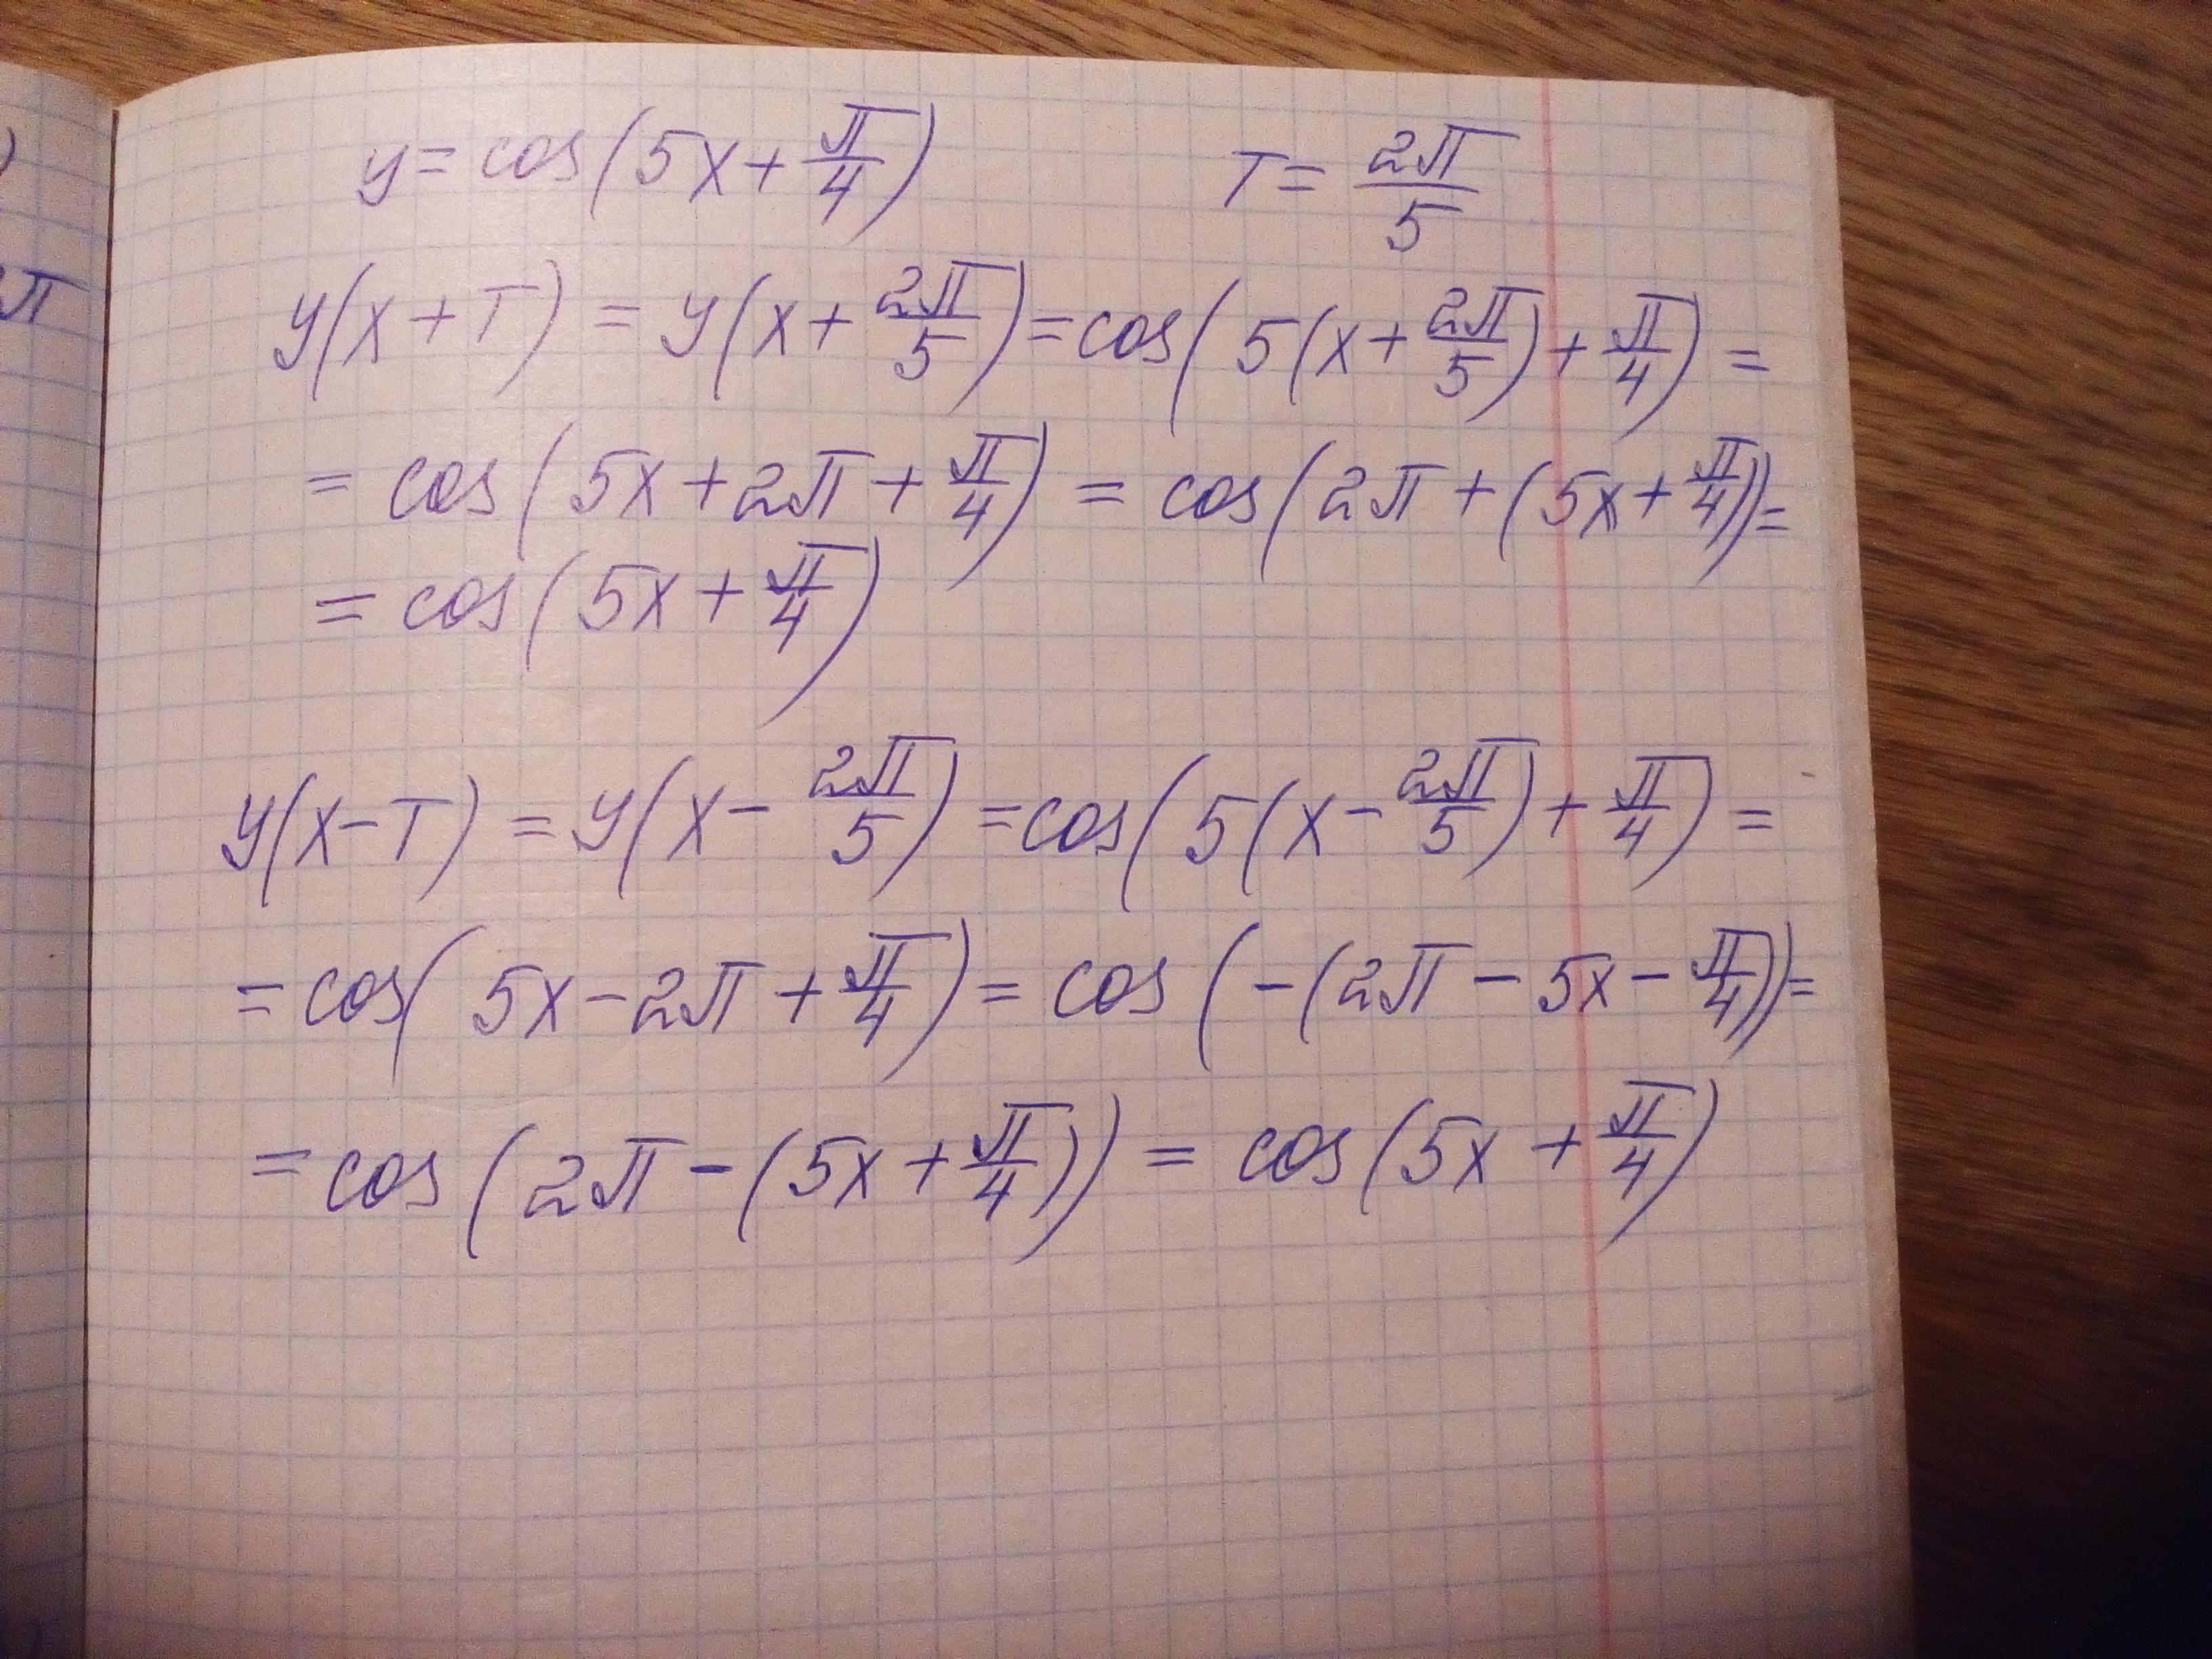 y = cos(5x + π/4)    T = 2π/5
y(x + T) = y(x + 2π/5) = cos(5(x + 2π/5) + π/4) =
= cos(5x + 2π + π/4) = cos(2π + (5x + π/4)) =
= cos(5x + π/4)
y(x - T) = y(x - 2π/5) = cos(5(x - 2π/5) + π/4) =
= cos(5x - 2π + π/4) = cos(-(2π - 5x - π/4)) =
= cos(2π - (5x + π/4)) = cos(5x + π/4)